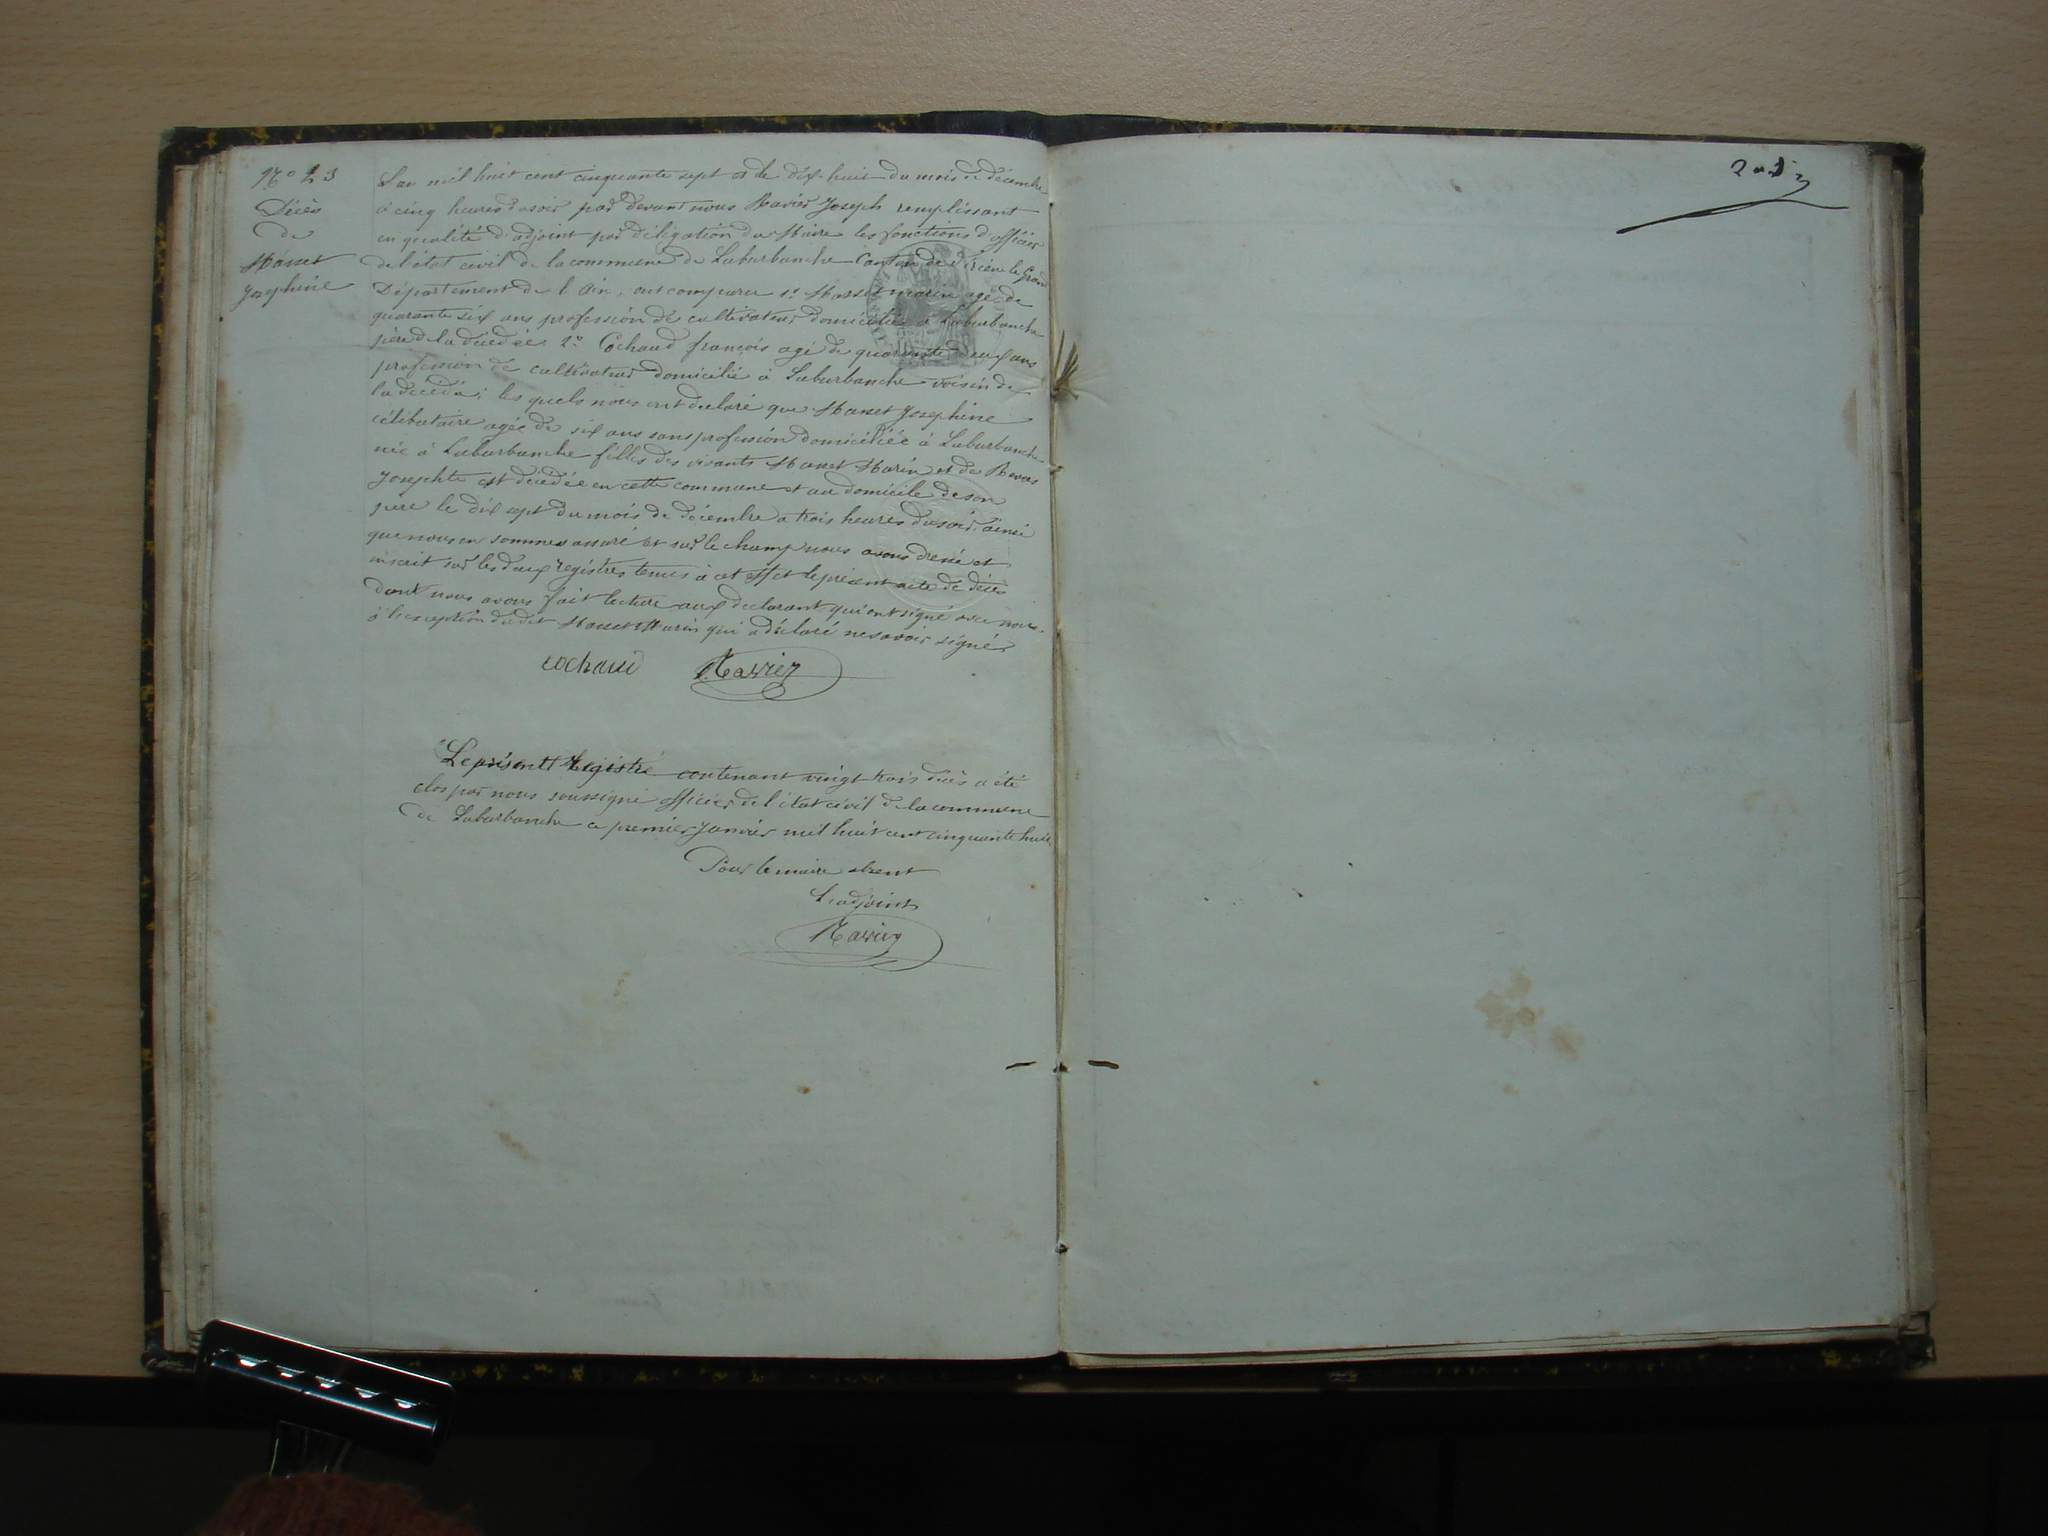 N° 23
Décès
de
Masset
Josephine
L'an mil huit cent cinquante sept et le dix-huit du mois de décembre
à cinq heures du soir par devant nous Ravier Joseph remplissant
en qualité d'adjoint par déligation du Maire les fonctions d'officier
de l'état civil de la commune de Laburbanche Canton de Virieu le Grand
Département de l'Ain, ont comparu 1° Masset Marin agé de
quarante six ans profession de cultivateur domicilié à Laburbanche
père de la décédée 2° Cochaud françois agé de quarante deux ans
profession de cultivateur domicilié à Laburbanche voisin de
la décédé; les quels nous ont declaré que Masset Josephine
célibataire agée de six ans sans profession domiciliée à Laburbanche
née à Laburbanche filles des vivants Masset Marin et de
Josephte est décédée en cette commune et au domicile de son
père le dix sept du mois de décembre a trois heures du soir, ainsi
que nous en sommes assuré et sur le champ nous avons dressé et
inscrit sur les deux registres tenus à cet effet le présent acte de décès
dont nous avons fait lecture aux declarant qui ont signé avec nous
à l'exception dudit Masset Marin qui a déclaré ne savoir signé
cochaud Ravier
Le présent Registre contenant vingt trois décès a été
clos par nous soussigné officier de l'état civil de la commune
de Laburbanche ce premier Janvier mil huit cent cinquante huit
Pour le maire absent
L'adjoint
Ravier